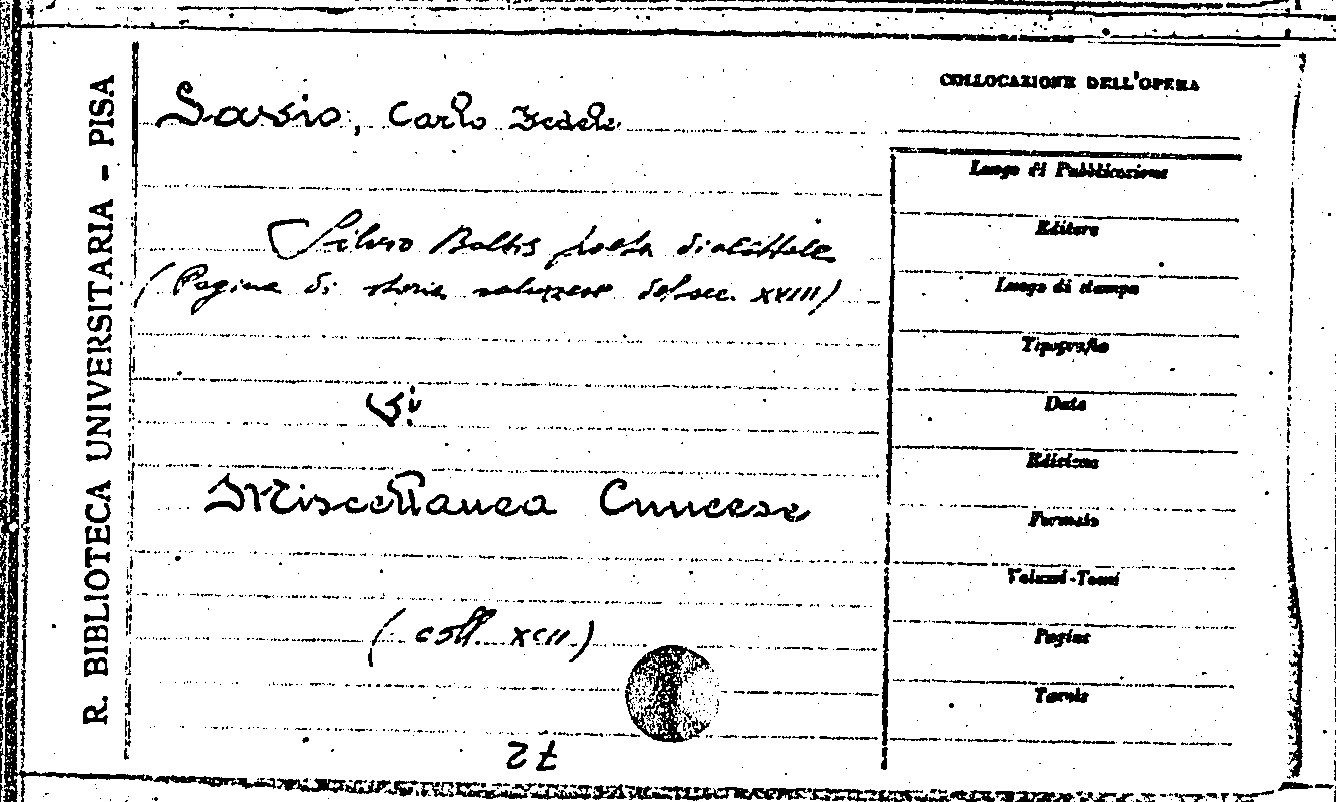 R. BIBLIOTECA UNIVERSITARIA - PISA
Savio, Carlo Fedele
Silvio Balbis poeta dialettale
(Pagine di storia saluzzese del sec. XVIII)
Miscellanea Cuneese
(coll. XCII)
COLLOCAZIONE DELL'OPERA
Luogo di Pubblicazione
Editore
Luogo di stampa
Tipografia
Data
Edizione
Formato
Volumi-Tomi
Pagine
Tavole